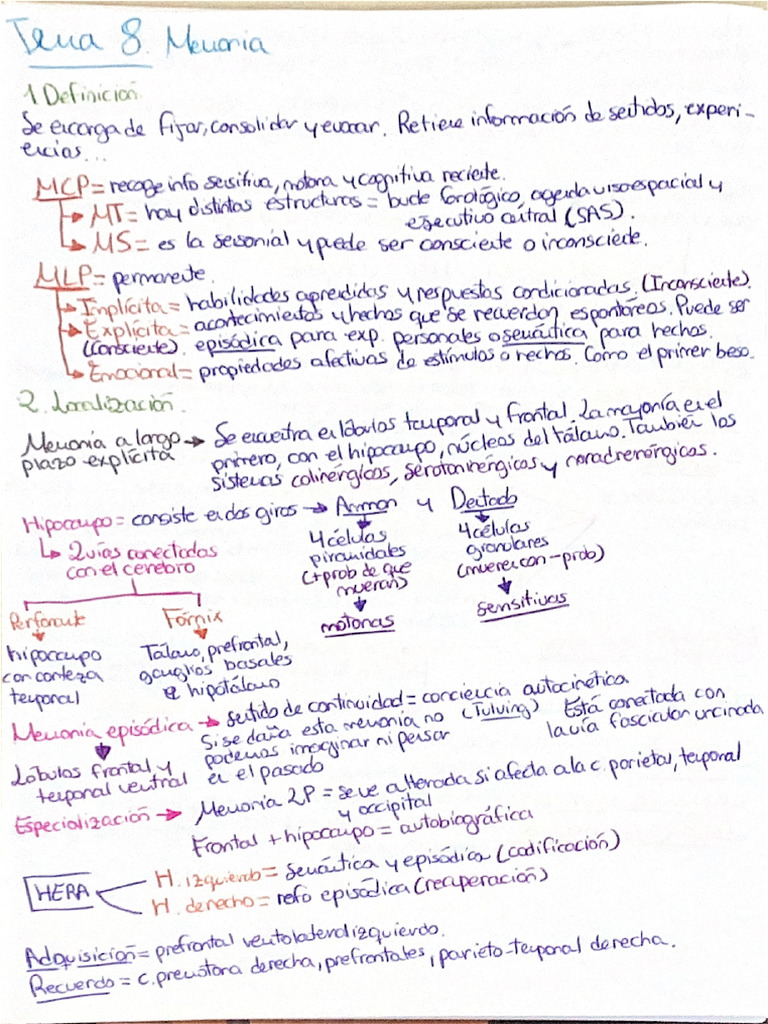 Tema 8. Memoria
1 Definición.
Se encarga de fijar, consolidar y evocar. Retiene información de sentidos, experi-
encias...
MCP = recoge info sensitiva, motora y cognitiva reciente.
MT = hay distintas estructuras = bucle fonológico, agenda visoespacial y
ejecutivo central (SAS).
MS = es la sensorial y puede ser consciente o inconsciente.
MLP = permanente.
Implícita = habilidades aprendidas y respuestas condicionadas. (Inconsciente).
Explícita = acontecimientos y hechos que se recuerdan espontáneos. Puede ser
(Consciente). episódica para exp. personales o semántica para hechos.
Emocional = propiedades afectivas de estímulos o hechos. Como el primer beso.
2. Localización.
Memoria a largo plazo explícita → Se encuentra en lóbulos temporal y frontal. La mayoría en el
primero, con el hipocampo, núcleos del tálamo. También los
sistemas colinérgicos, serotoninérgicos y noradrenérgicos.
Hipocampo = consiste en dos giros → Ammon y Dentado
↳ 2 vías conectadas
con el cerebro
4 células
piramidales
(+ prob de que
mueran)
motoras
4 células
granulares
(mueren con - prob)
sensitivas
Perforante
hipocampo
con corteza
temporal
Fórnix
Tálamo, prefrontal,
ganglios basales
e hipotálamo
Memoria episódica → sentido de continuidad = conciencia autocinética
(Tulving)
Si se daña esta memoria no
podemos imaginar ni pensar
en el pasado
Está conectada con
la vía fascicular uncinada
Lóbulos frontal y
temporal ventral
Especialización → Memoria LP = se ve alterada si afecta a la c. parietal, temporal
y occipital
Frontal + hipocampo = autobiográfica
HERA
H. izquierdo = semántica y episódica (codificación)
H. derecho = refo episódica (recuperación)
Adquisición = prefrontal ventolateral izquierdo.
Recuerdo = c. premotora derecha, prefrontales, parieto-temporal derecha.